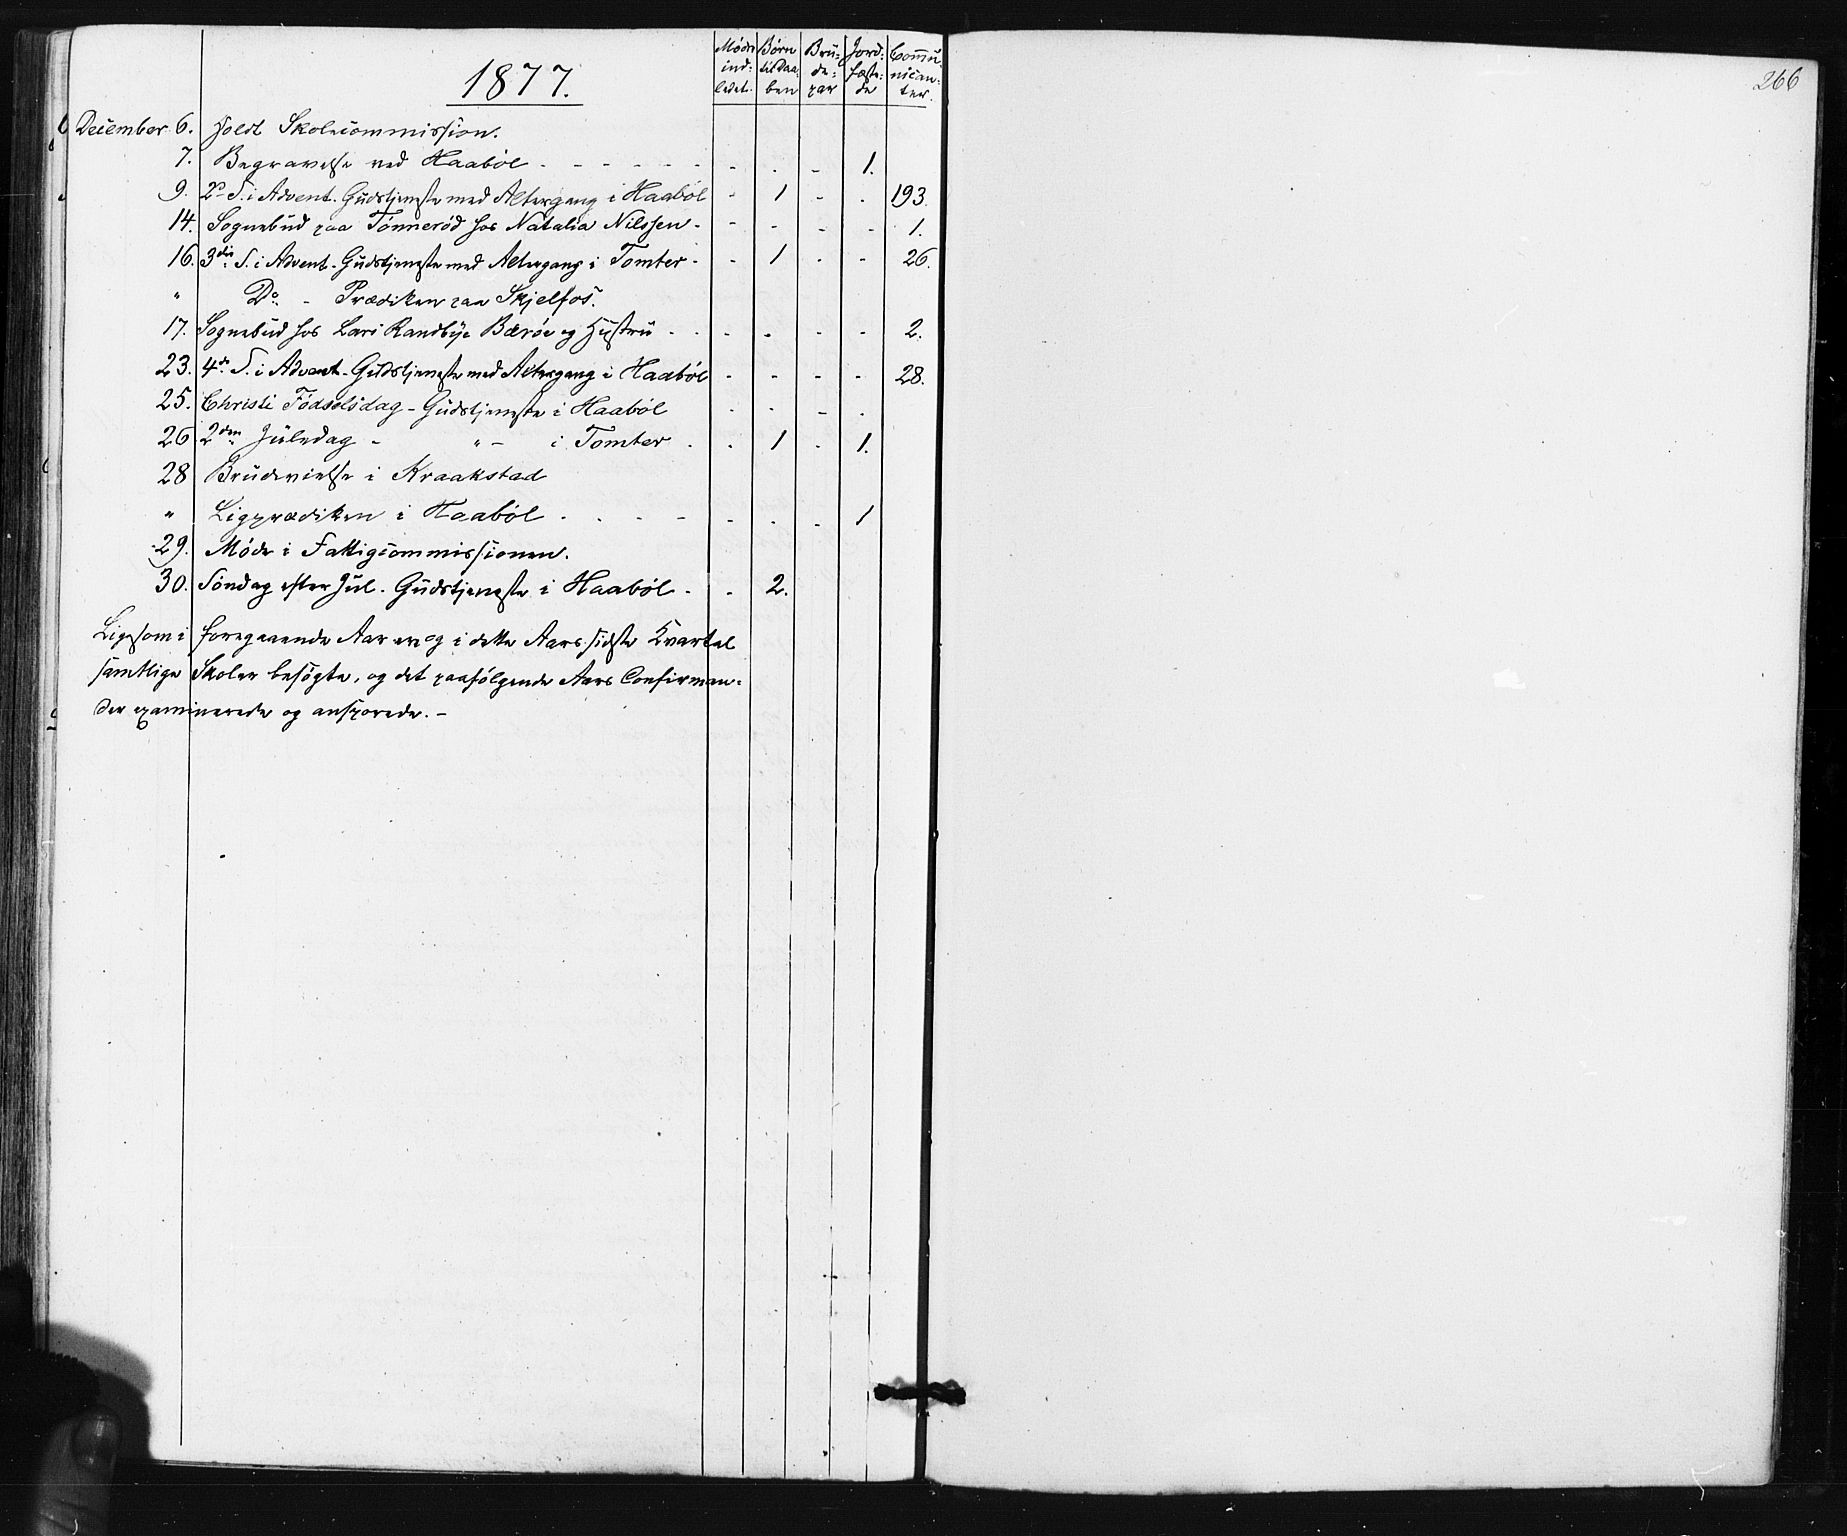 1877.
Mødre indledet. Børn til Daaben Brudepar Jordfæstede Communicanter.
December 6. Holdt Skolecommission.
7. Begravelse ved Haabøl - - - - - - - . - 1.
9. 2n S. i Advent. Gudstjeneste med Altergang i Haabøl - 1 - - 193.
14. Sognebud paa Tønnerød hos Natalia Nilssen - - - - - 1.
16. 3die S. i Advent. Gudstjeneste med Altergang i Tomter - - 1 - - 26.
" Do. - Prædiken paa Skjelfos.
17. Sognebud hos Lars Randbye Bærøe og Hustru - - - - - 2.
23. 4de S. i Advent. Gudstjeneste med Altergang i Haabøl - - - - 28.
25. Christi Fødselsdag - Gudstjeneste i Haabøl - - - -
26 2den Juledag - " - i Tomter - - 1 - 1.
28 Brudevielse i Kraakstad
" Ligprædiken i Haabøl - - - - - - - 1
29. Møde i Fattigcommissionen.
30. Søndag efter Jul. Gudstjeneste i Haabøl - - 2.
Ligesom i foregaaende Aar er og i dette Aars sidste Kvartal
samtlige Skoler besøgte, og det paafølgende Aars Confirman-
der examinerede og ansporede. -
266